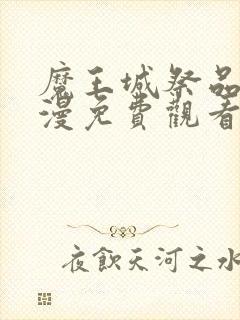 魔王城祭品
漫免費觀看
夜飲天河之水